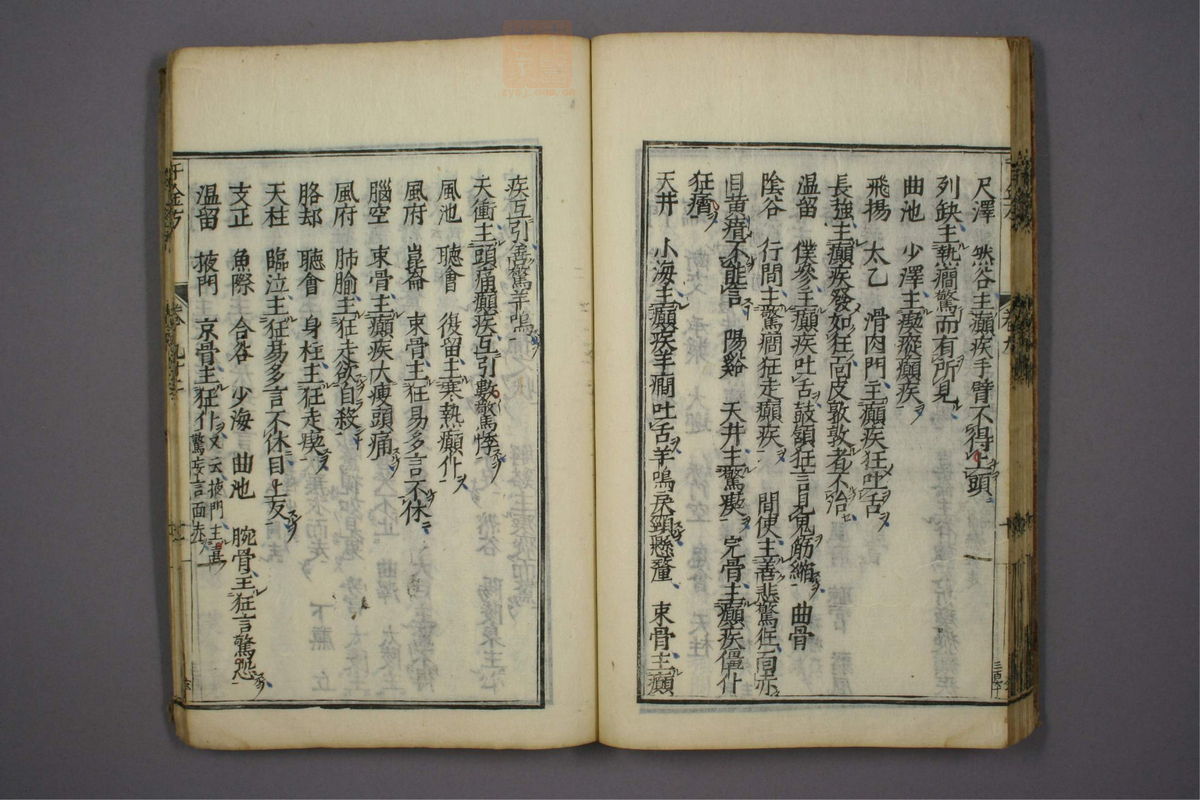 尺澤 然谷主癲疾手臂不得上頭
列缺主熱癇驚而有所見
曲池 少澤主瘈瘲癲疾
飛揚 太乙 滑肉門主癲疾狂吐舌
長強主癲疾發如狂面皮敦敦者不治
温留 僕參主癲疾吐舌鼓頷狂言見鬼筋縮 曲骨
陰谷 行間主驚癇狂走癲疾 間使主善悲驚狂面赤
目黃瘖不能言 陽谿 天井主驚瘈 完骨主癲疾僵仆
狂瘧
天井 小海主癲疾羊癇吐舌羊鳴戾頸懸釐 束骨主癲
疾互引善驚羊鳴
天衝主頭痛癲疾互引數驚悸
風池 聽會 復留主寒熱癲仆
風府 崑崙 束骨主狂易多言不休
腦空 束骨主癲疾大瘦頭痛
風府 肺腧主狂走欲自殺
胳却 聽會 身柱主狂走瘈
天柱 臨泣主狂易多言不休目上反
支正 魚際 合谷 少海 曲池 腕骨主狂言驚恐
温留 掖門 京骨主狂仆又云掖門主喜
驚妄言面赤
千金方